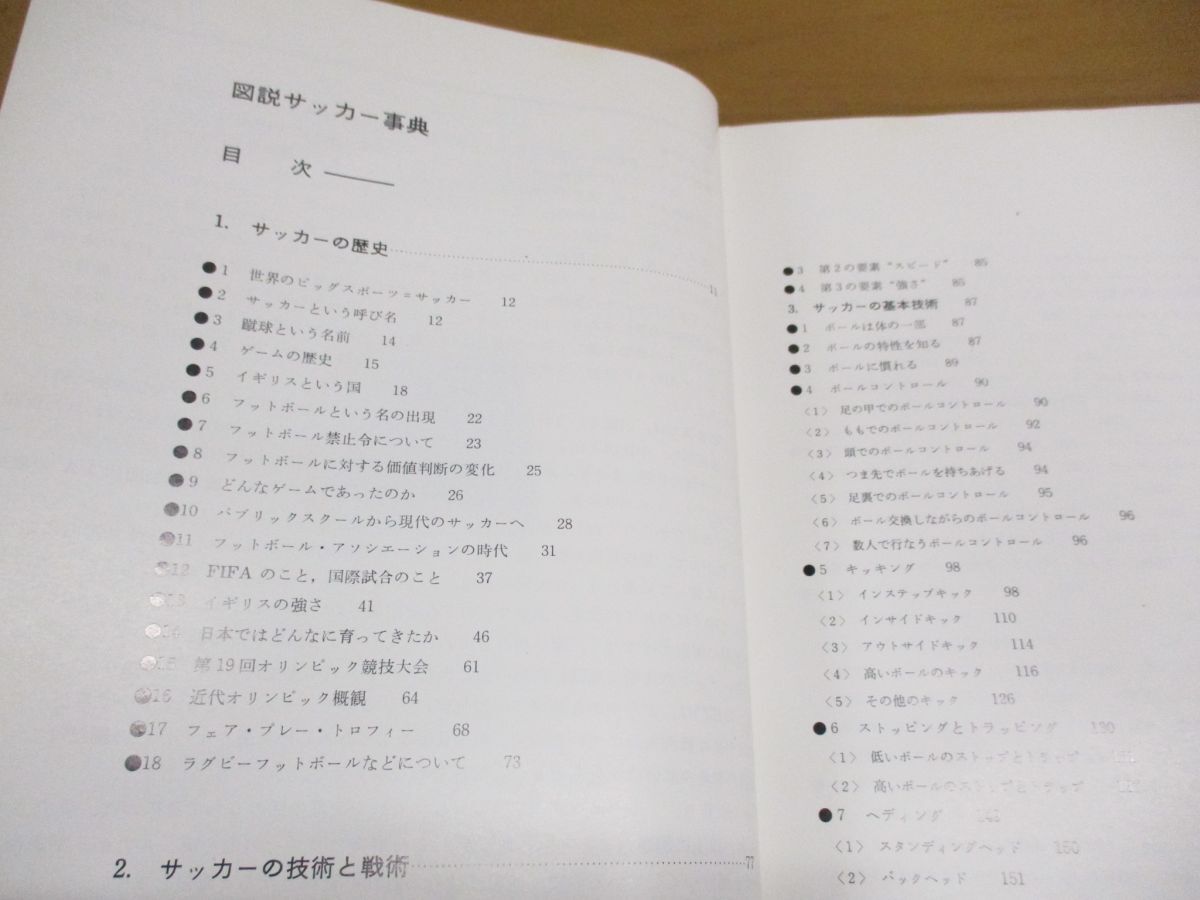 図説サッカー事典
目 次
1. サッカーの歴史 11
●1 世界のビッグスポーツ=サッカー 12
●2 サッカーという呼び名 12
●3 蹴球という名前 14
●4 ゲームの歴史 15
●5 イギリスという国 18
●6 フットボールという名の出現 22
●7 フットボール禁止令について 23
●8 フットボールに対する価値判断の変化 25
●9 どんなゲームであったのか 26
●10 パブリックスクールから現代のサッカーへ 28
●11 フットボール・アソシエーションの時代 31
●12 FIFA のこと,国際試合のこと 37
●13 イギリスの強さ 41
●14 日本ではどんなに育ってきたか 46
●15 第19回オリンピック競技大会 61
●16 近代オリンピック概観 64
●17 フェア・プレー・トロフィー 68
●18 ラグビーフットボールなどについて 73
2. サッカーの技術と戦術 77
●3 第2の要素“スピード” 85
●4 第3の要素“強さ” 85
3. サッカーの基本技術 87
●1 ボールは体の一部 87
●2 ボールの特性を知る 87
●3 ボールに慣れる 89
●4 ボールコントロール 90
〈1〉 足の甲でのボールコントロール 90
〈2〉 ももでのボールコントロール 92
〈3〉 頭でのボールコントロール 94
〈4〉 つま先でボールを持ちあげる 94
〈5〉 足裏でのボールコントロール 95
〈6〉 ボール交換しながらのボールコントロール 96
〈7〉 数人で行なうボールコントロール 96
●5 キッキング 98
〈1〉 インステップキック 98
〈2〉 インサイドキック 110
〈3〉 アウトサイドキック 114
〈4〉 高いボールのキック 116
〈5〉 その他のキック 126
●6 ストッピングとトラッピング 130
〈1〉 低いボールのストップとトラップ
〈2〉 高いボールのストップとトラップ
●7 ヘディング
〈1〉 スタンディングヘッド 150
〈2〉 バックヘッド 151